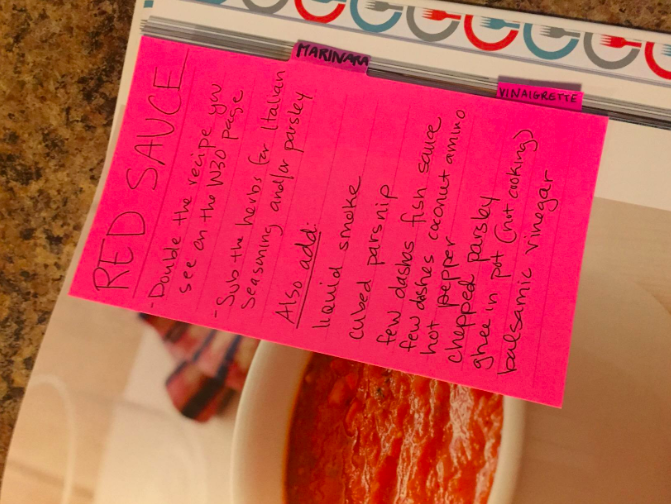 MARINARA
VINAIGRETTE
RED SAUCE
- Double the recipe you
see on the W30 page
- Sub the herbs for Italian
seasoning and/or parsley
Also add:
liquid smoke
cubed parsnip
few dashes fish sauce
few dashes coconut amino
hot pepper
chopped parsley
ghee in pot (not cooking)
balsamic vinegar